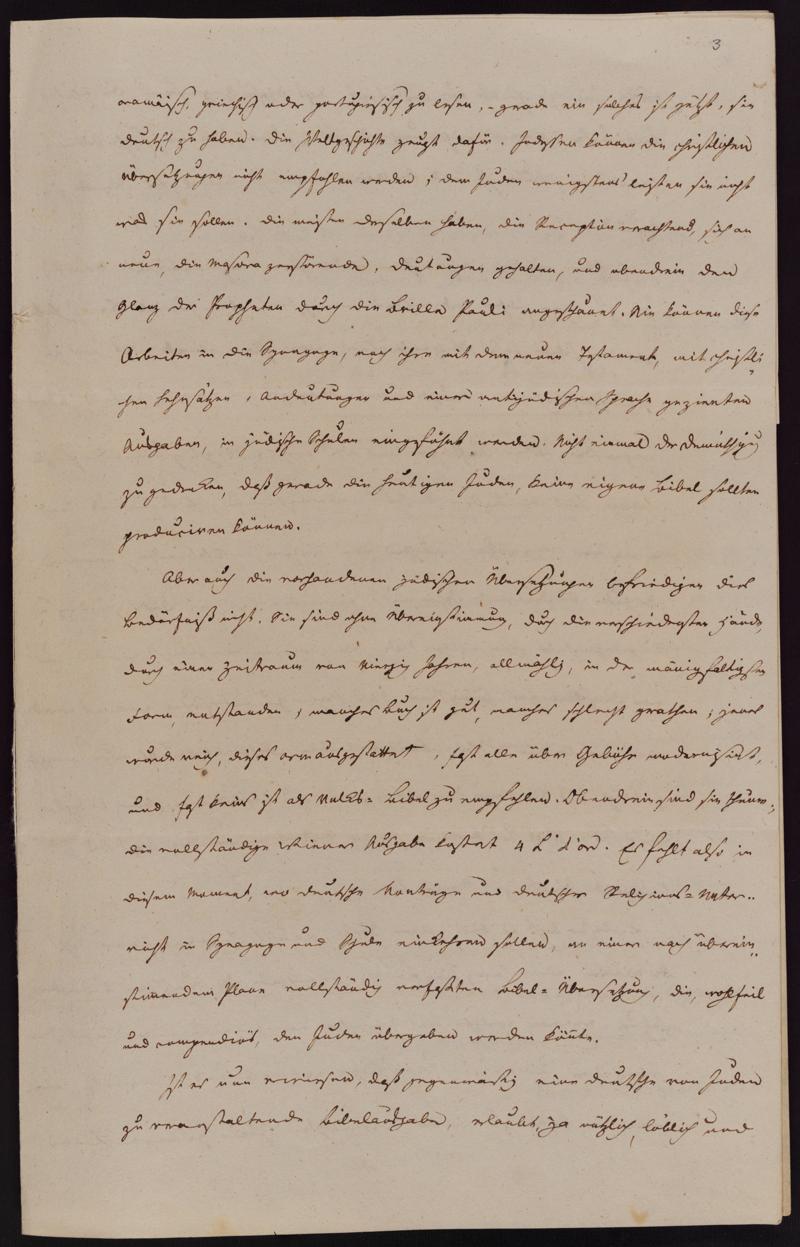 3
aramäisch, griechisch oder portugiesisch zu lesen, – gerade ein solches ist jetzt, sie
deutsch zu haben. Die Weltgeschichte zeugt dafür. Indessen können die christlichen
Übersetzungen nicht empfohlen werden; dem Juden wenigstens leisten sie nicht
was sie sollen. Die meisten derselben haben, die Reception verachtend, sich an
neue, die Masora zerstörende, Deutungen gehalten, und obendrein den
Glanz der Propheten durch die Brille Pauli angeschauet. Nie können diese
Arbeiten in die Synagoge, noch ihre mit dem neuen Testament, mit christli-
chen Lehrsätzen, Andeutungen und einer antijüdischen Sprache gezierten
Ausgaben, in jüdische Schulen eingeführt werden. Nicht einmal der Demüthigung
zu gedenken, daß gerade die heutigen Juden, keine eigene Bibel sollten
produciren können.
Aber auch die vorhandenen jüdischen Übersetzungen befriedigen dies
Bedürfniß nicht. Sie sind ohne Übereinstimmung, durch die verschiedensten Hände,
durch einen Zeitraum von vierzig Jahren, allmählig, in der mannigfaltigsten
Form, entstanden; manches Buch ist gut, manches schlecht gerathen; jenes
wurde reich, dieses arm ausgestattet, fast alle über Gebühr modernisirt,
und fast keins ist als Volks-Bibel zu empfehlen. Obendrein sind sie theuer;
die vollständige Wiener Ausgabe kostet 4 L'd'or. Es fehlt also in
diesem Moment, wo deutsche Vorträge und deutscher Religions-Unter-
richt in Synagoge und Schule einkehren sollen, an einer nach überein-
stimmendem Plane vollständig verfaßten Bibel-Übersetzung, die, wohlfeil
und compendiös, den Juden übergeben werden könnte.
Ist es nun erwiesen, daß gegenwärtig eine deutsche von Juden
zu veranstaltende Bibelausgabe, erlaubt, ja nützlich, löblich und